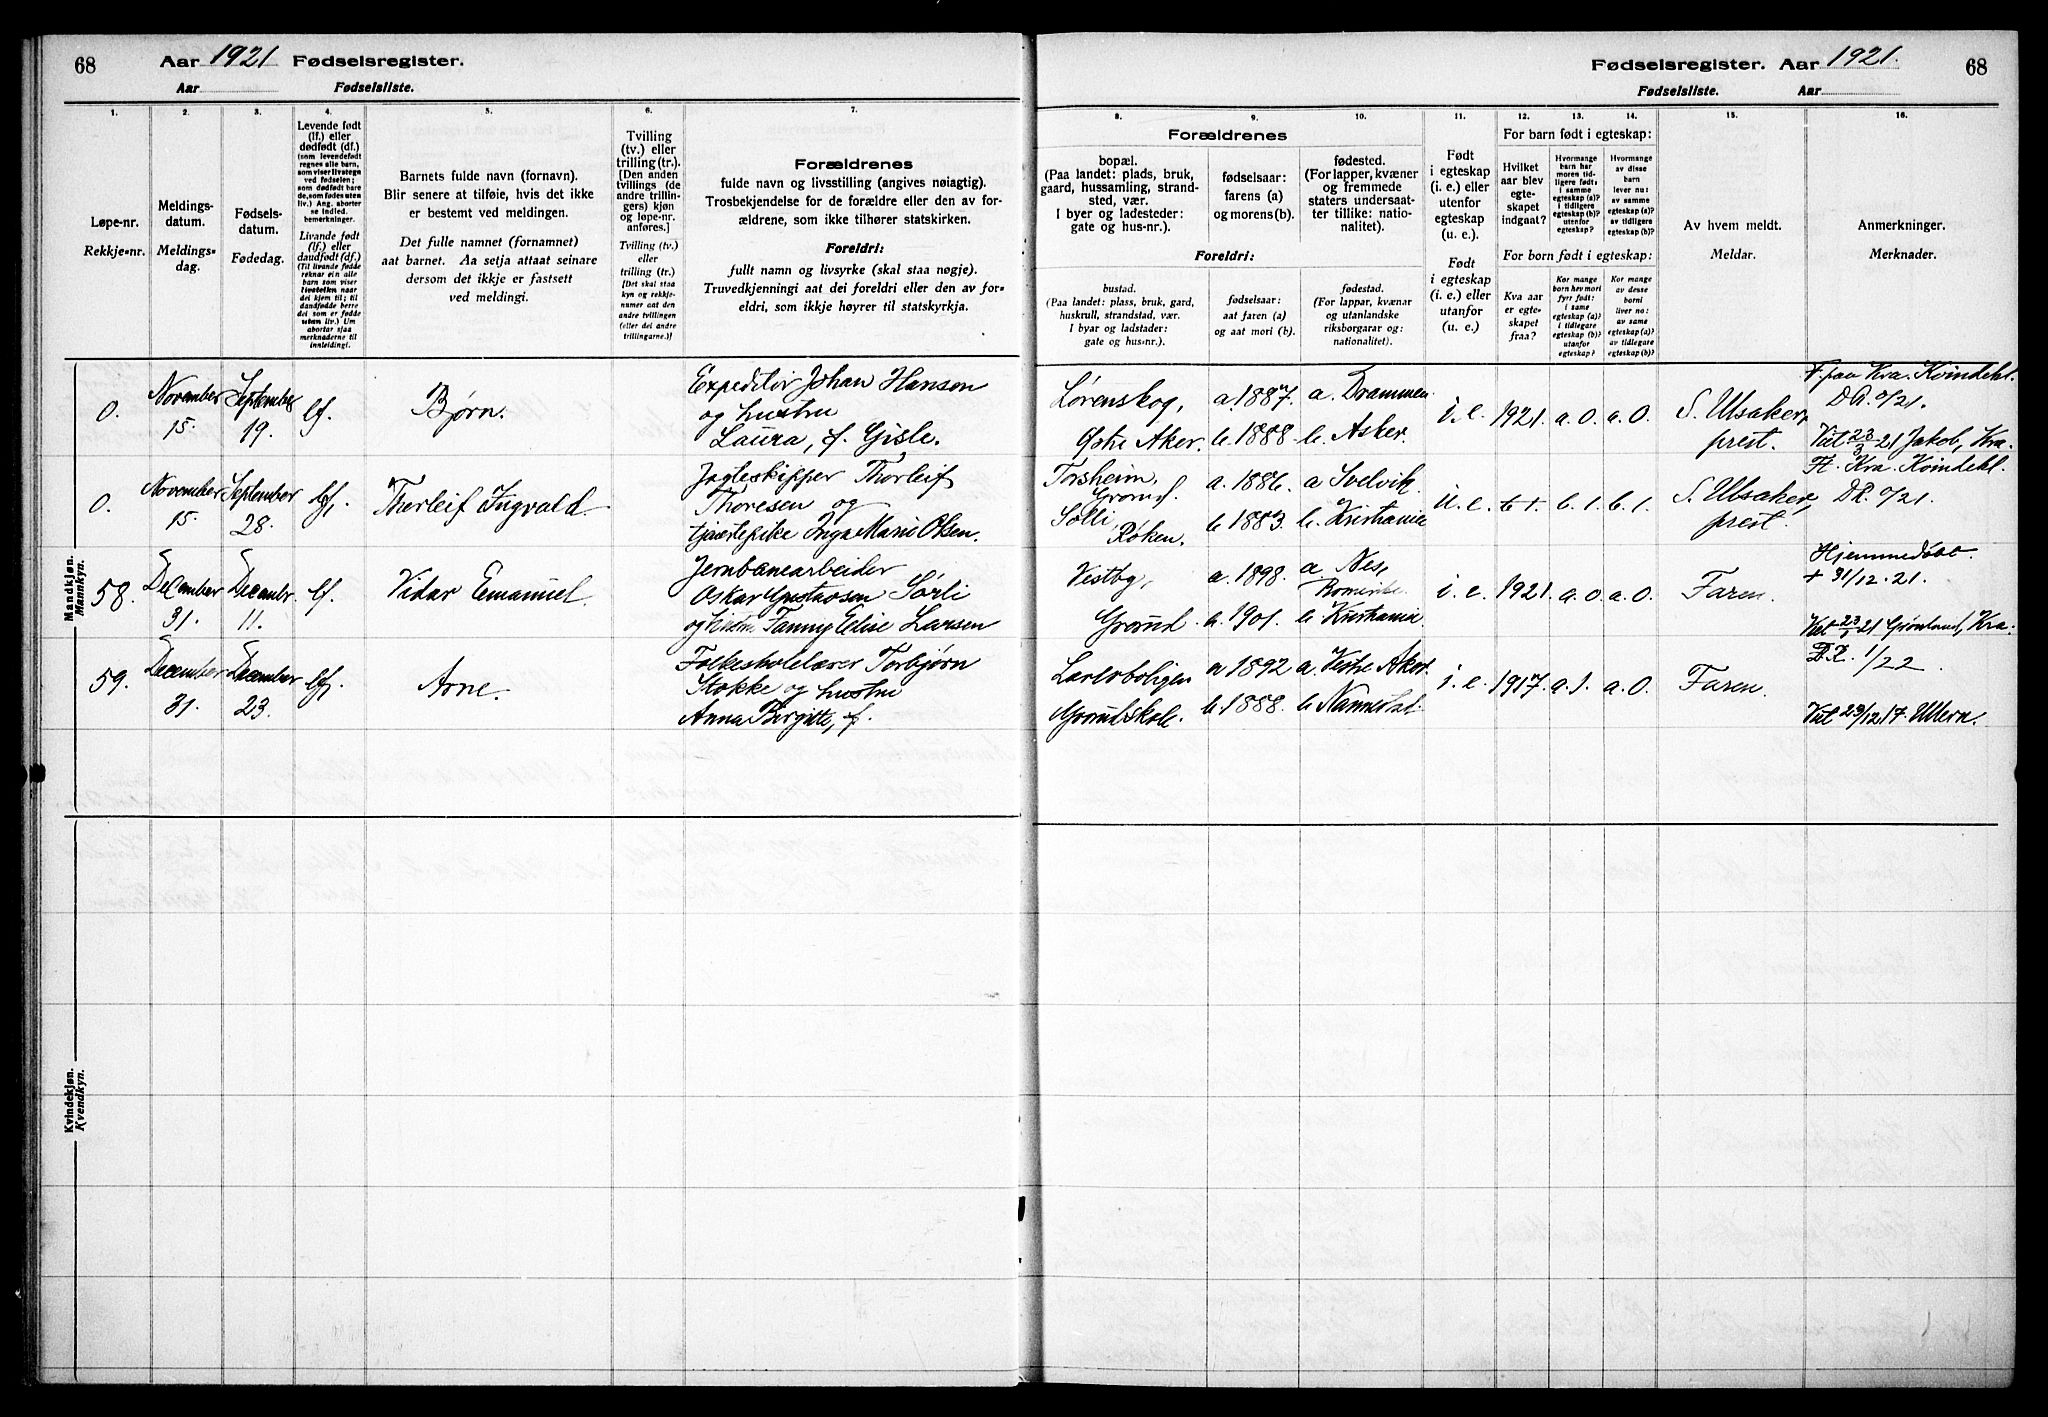 68 Aar 1921 Fødselsregister.
Aar Fødselsliste.
1. 2. 3. 4. 5. 6. 7.
Løpe-nr.
Rekkje=nr.
Meldings-
datum.
Meldings=
dag.
Fødsels-
datum.
Fødedag.
Levende født
(lf.) eller
dødfødt (df.)
(som levendefødt
regnes alle barn,
som viser livstegn
ved fødselen;
som dødfødt bare
de, som fødes uten
liv.) Ang. aborter
se indled.
bemerkninger.
Livande født
(lf.) eller
daudfødt (df.)
(Til livande fødde
reknar ein alle
barn som viser
livsteikn naar
dei kjem til; til
daudfødde berre
dei som er fødde
utan liv.) Um
abortar sjaa
merknaderne til
innleidingi.
Barnets fulde navn (fornavn).
Blir senere at tilføie, hvis det ikke
er bestemt ved meldingen.
Det fulle namnet (fornamnet)
aat barnet. Aa setja attaat seinare
dersom det ikkje er fastsett
ved meldingi.
Tvilling
(tv.) eller
trilling (tr.).
[Den anden
tvillings (de
andre trillin-
gers) kjøn
og løpe-nr.
anføres.]
Tvilling (tv.)
eller
trilling (tr.)
[Det skal staa
kyn og rekkje-
numer aat den
andre tvillingen
(eller dei andre
trillingarne.)]
Forældrenes
fulde navn og livsstilling (angives nøiagtig).
Trosbekjendelse for de forældre eller den av for-
ældrene, som ikke tilhører statskirken.
Foreldri:
fullt namn og livsyrke (skal staa nøgje).
Truvedkjenningi aat dei foreldri eller den av for-
eldri, som ikkje høyrer til statskyrkja.
Mandkjøn.
Mannkyn.
0. November 15. September 19. lf. Bjørn.
Expeditør Johan Hansen
og hustru
Laura, f. Gisle.
0. November 15. September 28. lf. Thorleif Ingvald
Jagteskipper Thorleif
Thoresen og
tjenestepike Inga Marie Olsen.
58. December 31. Decembr. 11. lf. Vidar Emanuel.
Jernbanearbeider
Oskar Gustavsen Sørli
og hustru Fanny Elise Larsen
59. December 31. December 23. lf. Arne.
Folkeskolelærer Torbjørn
Stokke og hustru
Anna Birgitte, f.
Kvindekjøn.
Kvendkyn.
Fødselsregister. Aar 1921. 68
Fødselsliste. Aar
8. 9. 10. 11. 12. 13. 14. 15. 16.
Forældrenes
bopæl.
(Paa landet: plads, bruk,
gaard, hussamling, strand-
sted, vær.
I byer og ladesteder:
gate og hus-nr.).
fødselsaar:
farens (a)
og morens (b).
fødested.
(For lapper, kvæner
og fremmede
staters undersaat-
ter tillike: natio-
nalitet).
Foreldri:
bustad.
(Paa landet: plass, bruk, gard,
huskrull, strandstad, vær.
I byar og ladstader:
gate og hus=nr.).
fødselsaar:
aat faren (a)
og aat mori (b).
fødestad.
(For lappar, kvænar
og utanlandske
riksborgarar og:
nationalitet).
Født
i egteskap
(i. e.) eller
utenfor
egteskap
(u. e.).
Født
i egteskap
(i. e.) eller
utanfor
(u. e.)
For barn født i egteskap:
Hvilket
aar blev
egte-
skapet
indgaat?
Hvormange
barn har
moren tid-
ligere født:
i samme
egteskap (a)?
i tidligere
egteskap (b)?
utenfor
egteskap?
Hvormange
av disse
barn
lever nu:
av samme
egteskap (a)?
av tidligere
egteskap (b)?
For barn født i egteskap:
Kva aar
er egte-
skapet
fraa?
Kor mange
born hev mori
fyrr født:
i same
egteskap (a)?
i tidlegare
egteskap (b)?
utanfor
egteskap?
Kor mange
av desse
borni
liver no:
av same
egteskap (a)?
av tidlegare
egteskap (b)?
Av hvem meldt.
Meldar.
Anmerkninger.
Merknader.
Lørenskog,
Østre Aker.
a. 1887. a. Drammen
b. 1888 b. Asker.
i. e. 1921. a. 0. a. 0. S. Utsaker, prest.
F. paa Kra. Kvindekl.
D.R. 0/21.
Viet 23/3 21 Jakob, Kra.
Torsheim,
Grorud.
Solli,
Røken.
a. 1886. a Svelvik
b 1883. b. Kristiania
u. e. b. 1. b. 1. S. Utsaker, prest.
Ft. Kra. Kvindekl.
D.R. 0/21.
Vestby,
Grorud.
a. 1898. a Nes, Romerike.
b. 1901. b Kristiania
i. e. 1921. a. 0. a. 0. Faren.
Hjemmedøbt
+ 31/12. 21.
Grønland, Kra.
Lærerboligen
Grorud skole.
a 1892 a. Vestre Aker
b. 1888. b Nannestad.
i. e. 1917. a. 1. a. 0. Faren.
D.R. 1/22.
Viet 29/12 17. Ullern.